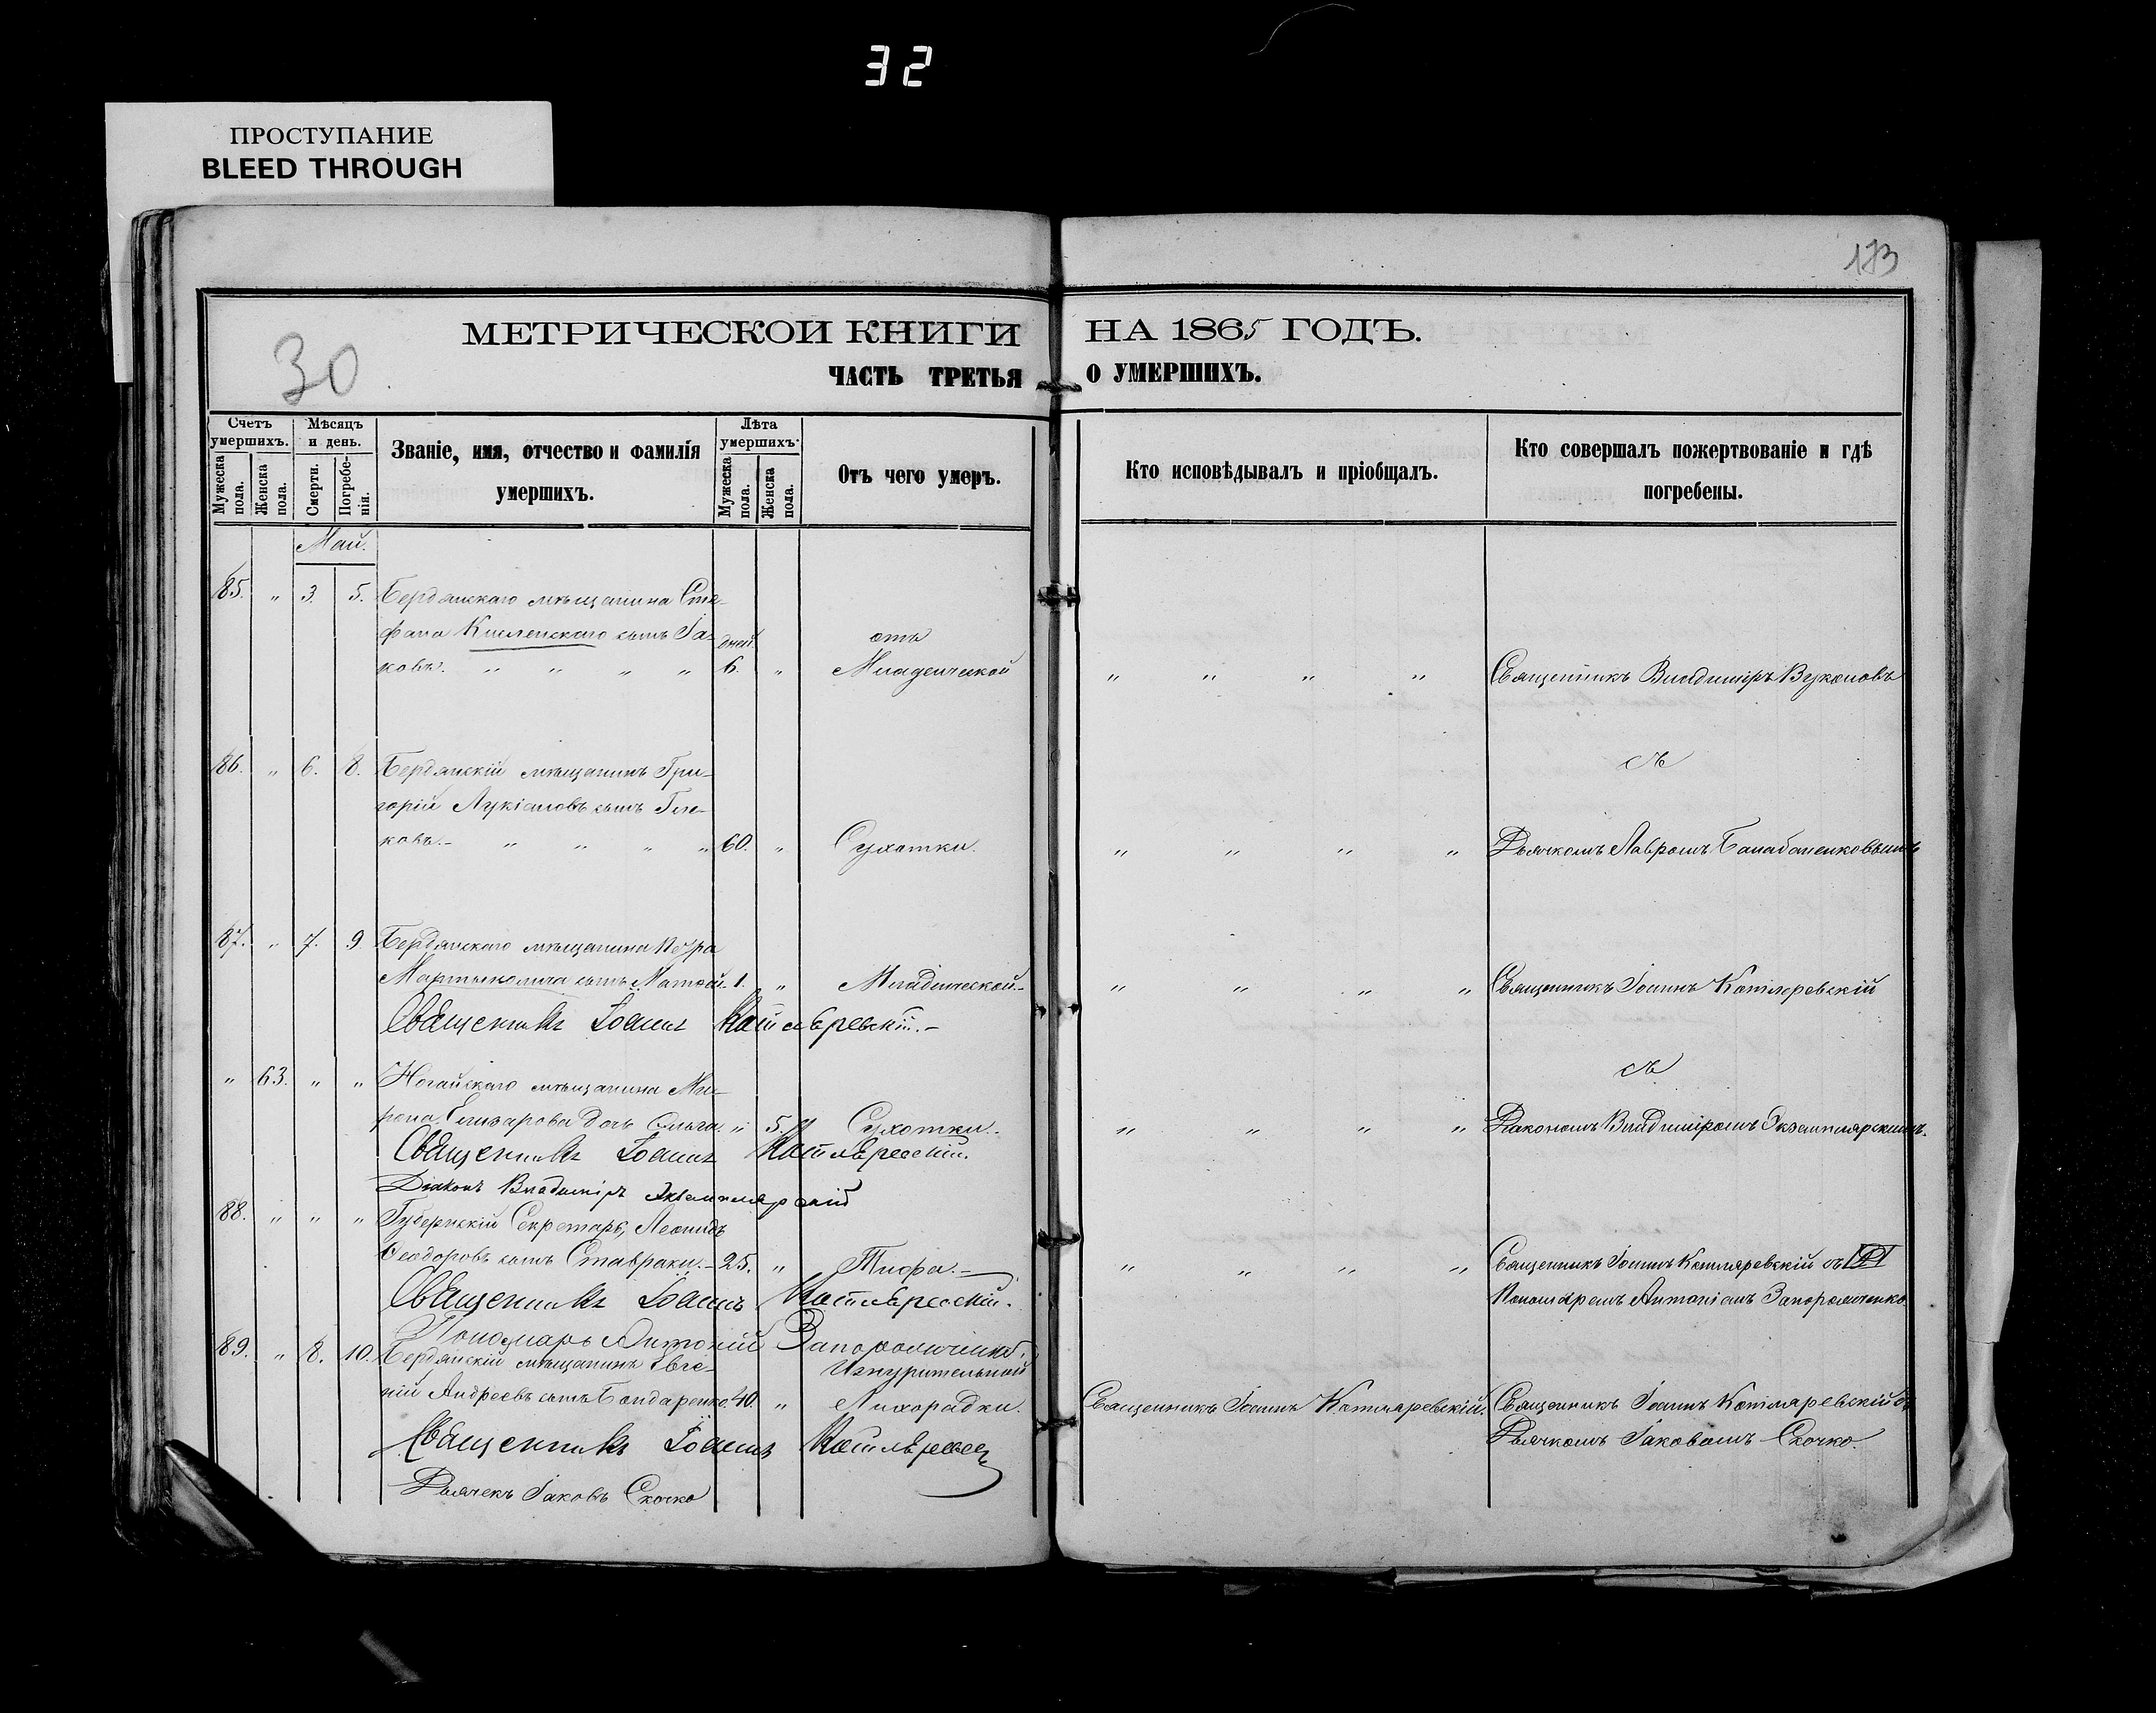 32
ПРОСТУПАНИЕ
BLEED THROUGH
173
30
МЕТРИЧЕСКОЙ КНИГИ НА 1865 ГОДЪ.
ЧАСТЬ ТРЕТЬЯ О УМЕРШИХЪ.
Счетъ умершихъ.
Мужеска пола.
Женска пола.
Мѣсяцъ и день.
Смерти.
Погребенія.
Званіе, имя, отчество и фамилія умершихъ.
Лѣта умершихъ
Мужеска пола.
Женска пола.
Отъ чего умеръ.
Кто исповѣдывалъ и пріобщалъ.
Кто совершалъ пожертвованіе и гдѣ погребены.
Май.
85. " 3. 5. Бердянскаго мѣщанина Сте-
фана сынъ Іа- дней. отъ
ковъ. " " " " 6. " Младенческой " " " " Священникъ Владиміръ
86. " 6. 8. Бердянскій мѣщанинъ Гри- съ
горій Лукіановъ сынъ
ковъ.- " " " " 60. " Сухотки. " " " " Дьячкомъ Лавромъ
87. " 7. 9 Бердянскаго мѣщанина Петра
сынъ 1. " Младенческой.- " " " " Священникъ Іоаннъ Котляревскій
Священникъ Іоаннъ Котляревскій.-
" 63. " " Ногайскаго мѣщанина Ми- съ
рона Елизарова дочь Ольга. " 5. Сухотки. " " " " Діакономъ Владиміромъ Экземплярскимъ.
Священникъ Іоаннъ Котляревскій.
Діаконъ Владиміръ Экземплярскій
88. " " " Губернскій Секретарь, Леонидъ
Ѳеодоровъ сынъ Ставраки.- 25. " Тифа.- " " " " Священникъ Іоаннъ Котляревскій съ
Священникъ Іоаннъ Котляревскій. Пономаремъ Антоніемъ
Пономарь Антоній
89. " 8. 10. Бердянскій мѣщанинъ Евге- Изнурительной
ній Андреевъ сынъ Бондаренко. 40. " Лихорадки. Священникъ Іоаннъ Котляревскій. Священникъ Іоаннъ Котляревскій съ
Священникъ Іоаннъ Дьячкомъ Іаковомъ Скочко.
Дьячекъ Іаковъ Скочко